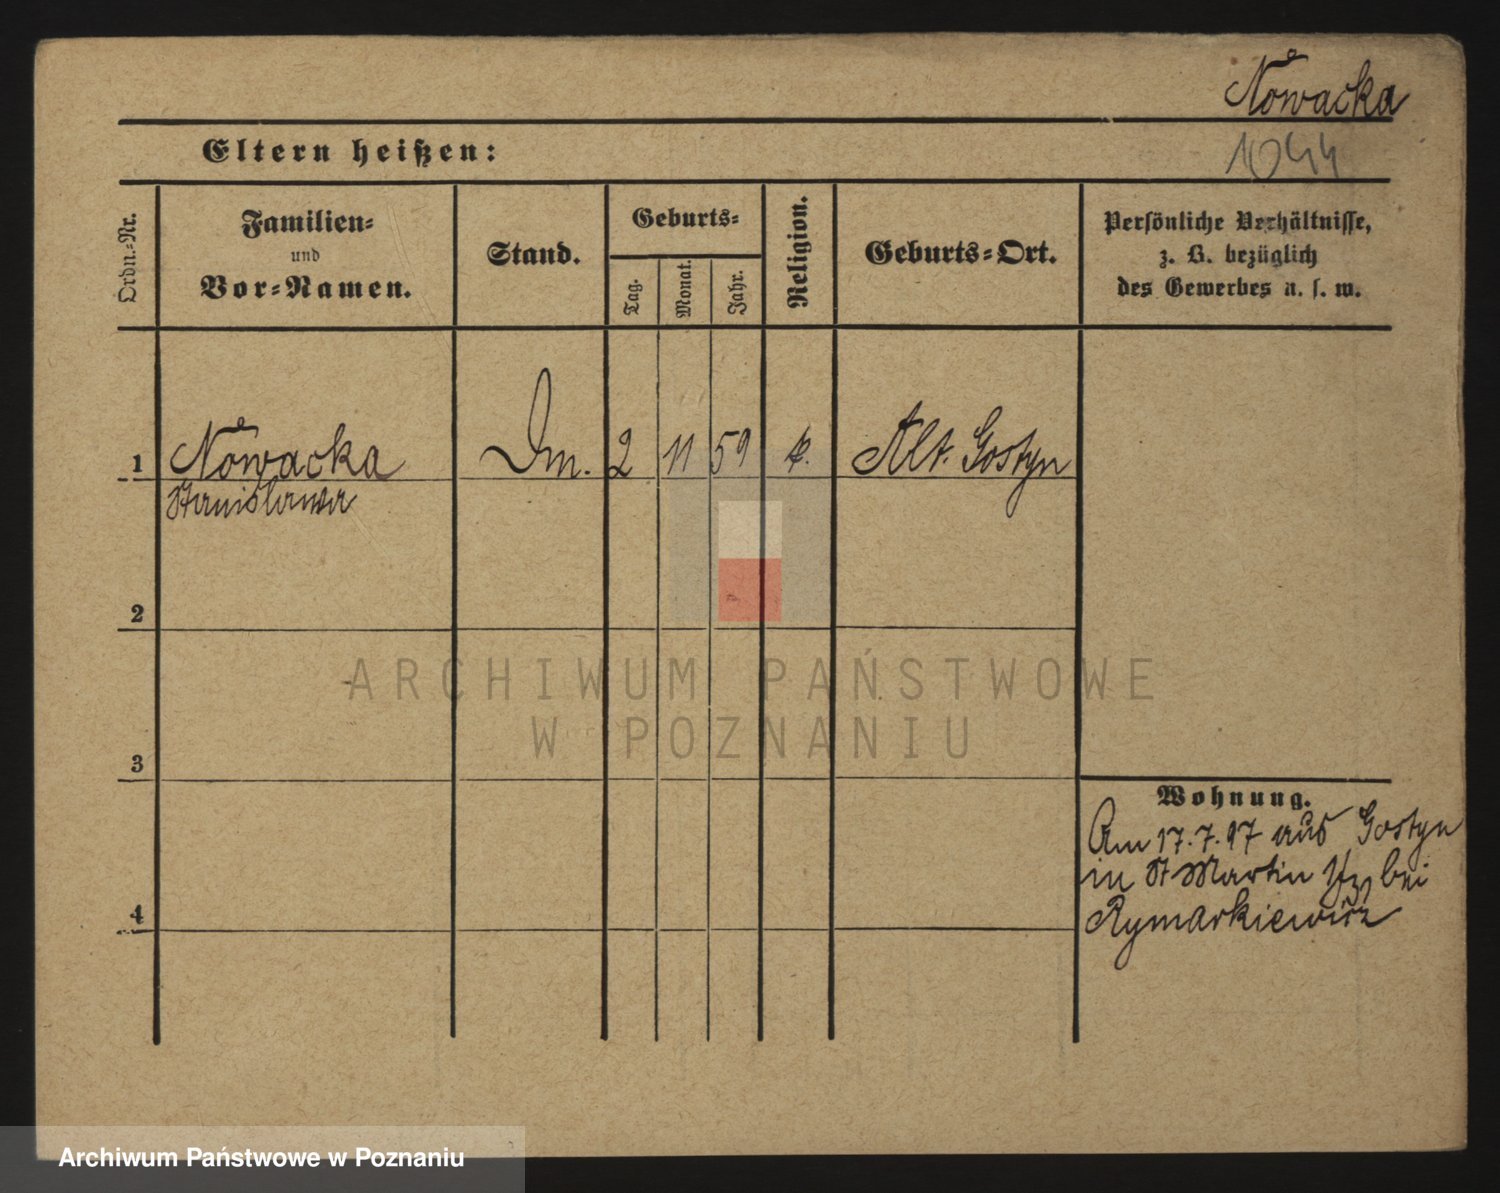 Nowacka
Eltern heißen:
1044
Ordn.-Nr.
Familien-
und
Vor-Namen.
Stand.
Geburts-
Tag.
Monat.
Jahr.
Religion.
Geburts-Ort.
Persönliche Verhältnisse,
z. B. bezüglich
des Gewerbes u. s. w.
1 Nowacka Dm. 2 11 59 k. Alt. Gostyn
Stanislawa
2
ARCHIWUM PAŃSTWOWE
W POZNANIU
3
Wohnung.
Am 17.7.97 aus Gostyn
in St Martin bei
4
Rymarkiewicz
Archiwum Państwowe w Poznaniu